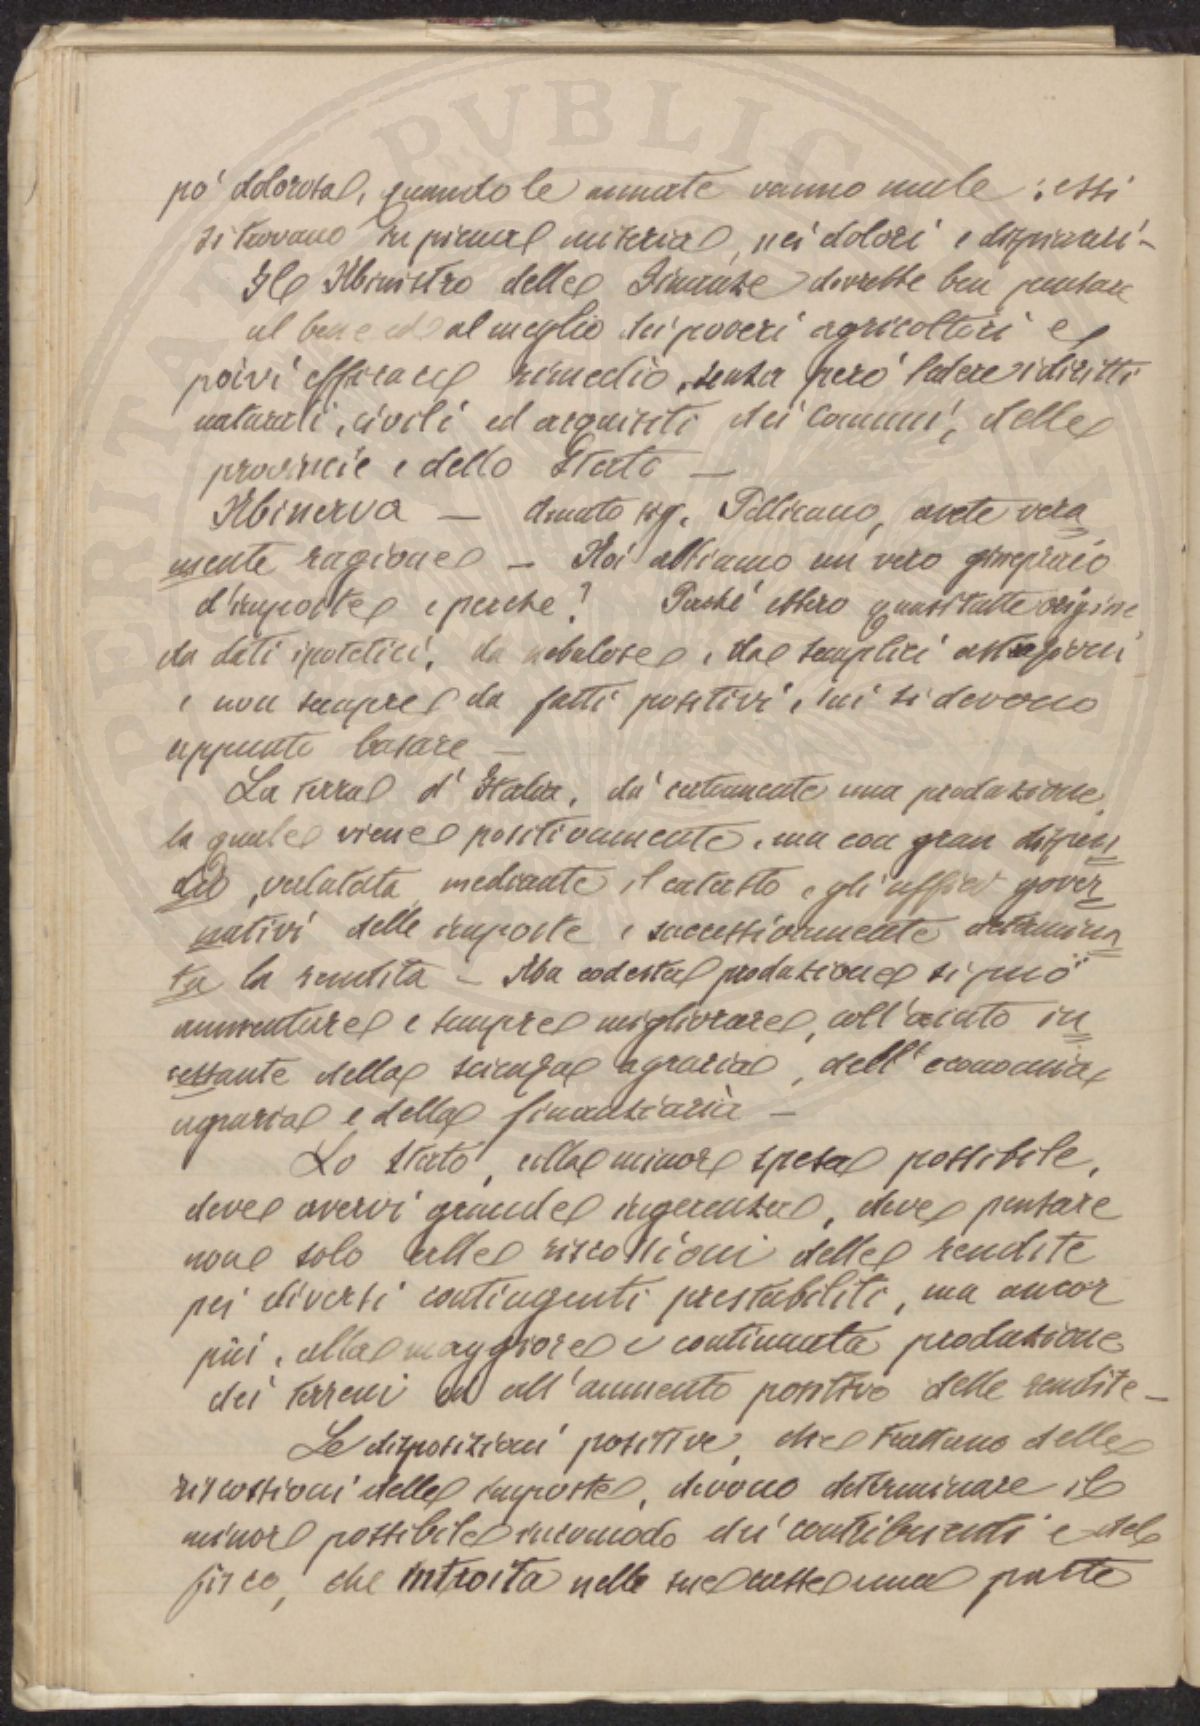 pó dolorosa, quando le annate vanno male: essi
si trovano in piena miseria, nei dolori e dispiaceri -
Il Ministro delle Finanze dovrebbe ben pensare
al bene ed al meglio dei poveri agricoltori e
porvi efficace rimedio, senza però ledere i diritti
naturali, civili ed acquisiti dei Comuni, delle
provincie e dello Stato —
Minerva — Amato sig. Pellicano, avete vera
mente ragione — Noi abbiamo un vero ginepraio
d'imposte e perchè? Perchè ebbero quasi tutte origine
da dati ipotetici, da nebulose, da semplici astrazioni
e non sempre da fatti positivi, sui si devono
appunto basare —
La terra d'Italia, dà certamente una produzione
la quale viene positivamente, ma con gran dispen
dio, valutata mediante il catasto e gli uffici gover
nativi delle imposte e successivamente determina
ta la rendita — Ma codesta produzione si può
aumentare e sempre migliorare, coll'aiuto in
cessante della scienza agraria, dell'economia
agraria e della finanziaria —
Lo Stato, colla minore spesa possibile,
deve avervi grande ingerenza, deve pensare
non solo alle riscossioni delle rendite
pei diversi contingenti prestabiliti, ma ancor
più, alla maggiore e continuata produzione
dei terreni ed all'aumento positivo delle rendite —
Le disposizioni positive, che trattano delle
riscossioni delle imposte, devono determinare il
minor possibile incomodo dei contribuenti e del
fisco, che introita nelle sue casse una parte
PVBLIC